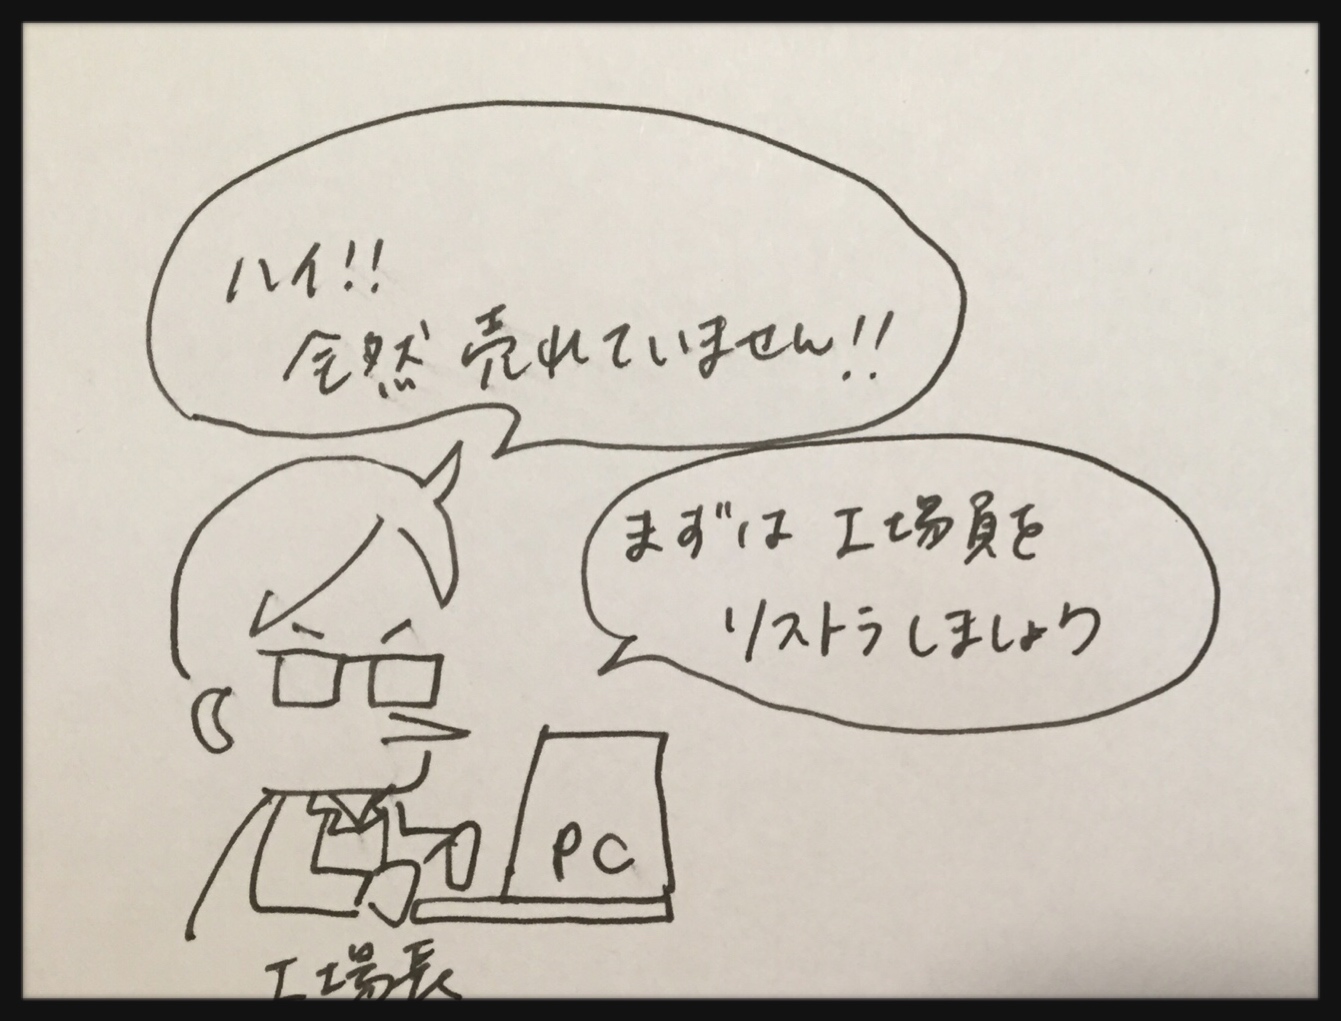 ハイ!!
全然 売れていません!!
まずは 工場員を
リストラしましょう
PC
工場長